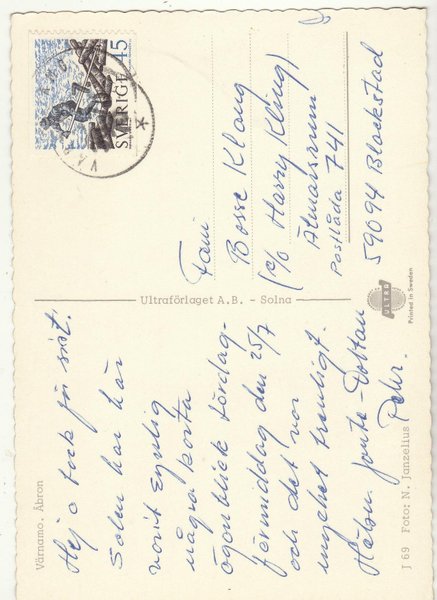 Värnamo. Åbron
Hej o tack för sist!
Solen har här
varit synlig
några korta
ögonblick lördag-
förmiddag den 25/7
och det var
mycket trevligt.
Hälsn
Pehr.
Ultraförlaget A.B. - Solna
SVERIGE 45
Fam
Bosse Klang
(c/o Harry Kling)
Älmarsrum
Postlåda 741
59094 Blackstad
ULTRA
Printed in Sweden
J 69 Foto: N. Janzelius